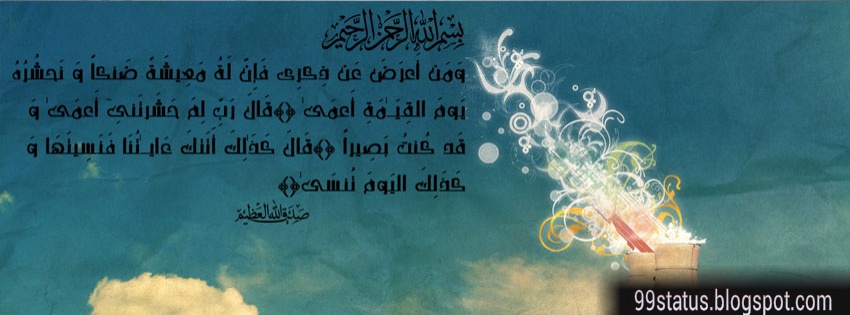 بِسْمِ اللهِ الرَّحْمٰنِ الرَّحِيْمِ
وَمَن أَعرَضَ عَن ذِكرِى فَإِنَّ لَهُ مَعِيشَةً ضَنكاً وَ نَحشُرُهُ
يَومَ القِيَـٰمَةِ أَعمَىٰ ﴿﴾قَالَ رَبِّ لِمَ حَشَرتَنِىّ أَعمَىٰ وَ
قَد كُنتُ بَصِيراً ﴿﴾قَالَ كَذَٰلِكَ أَتَتكَ ءَايَـٰتُنَا فَنَسِيتَهَا وَ
كَذَٰلِكَ اليَومَ تُنسَىٰ﴿﴾
صَدَقَ اللهُ العَظِيْم
99status.blogspot.com